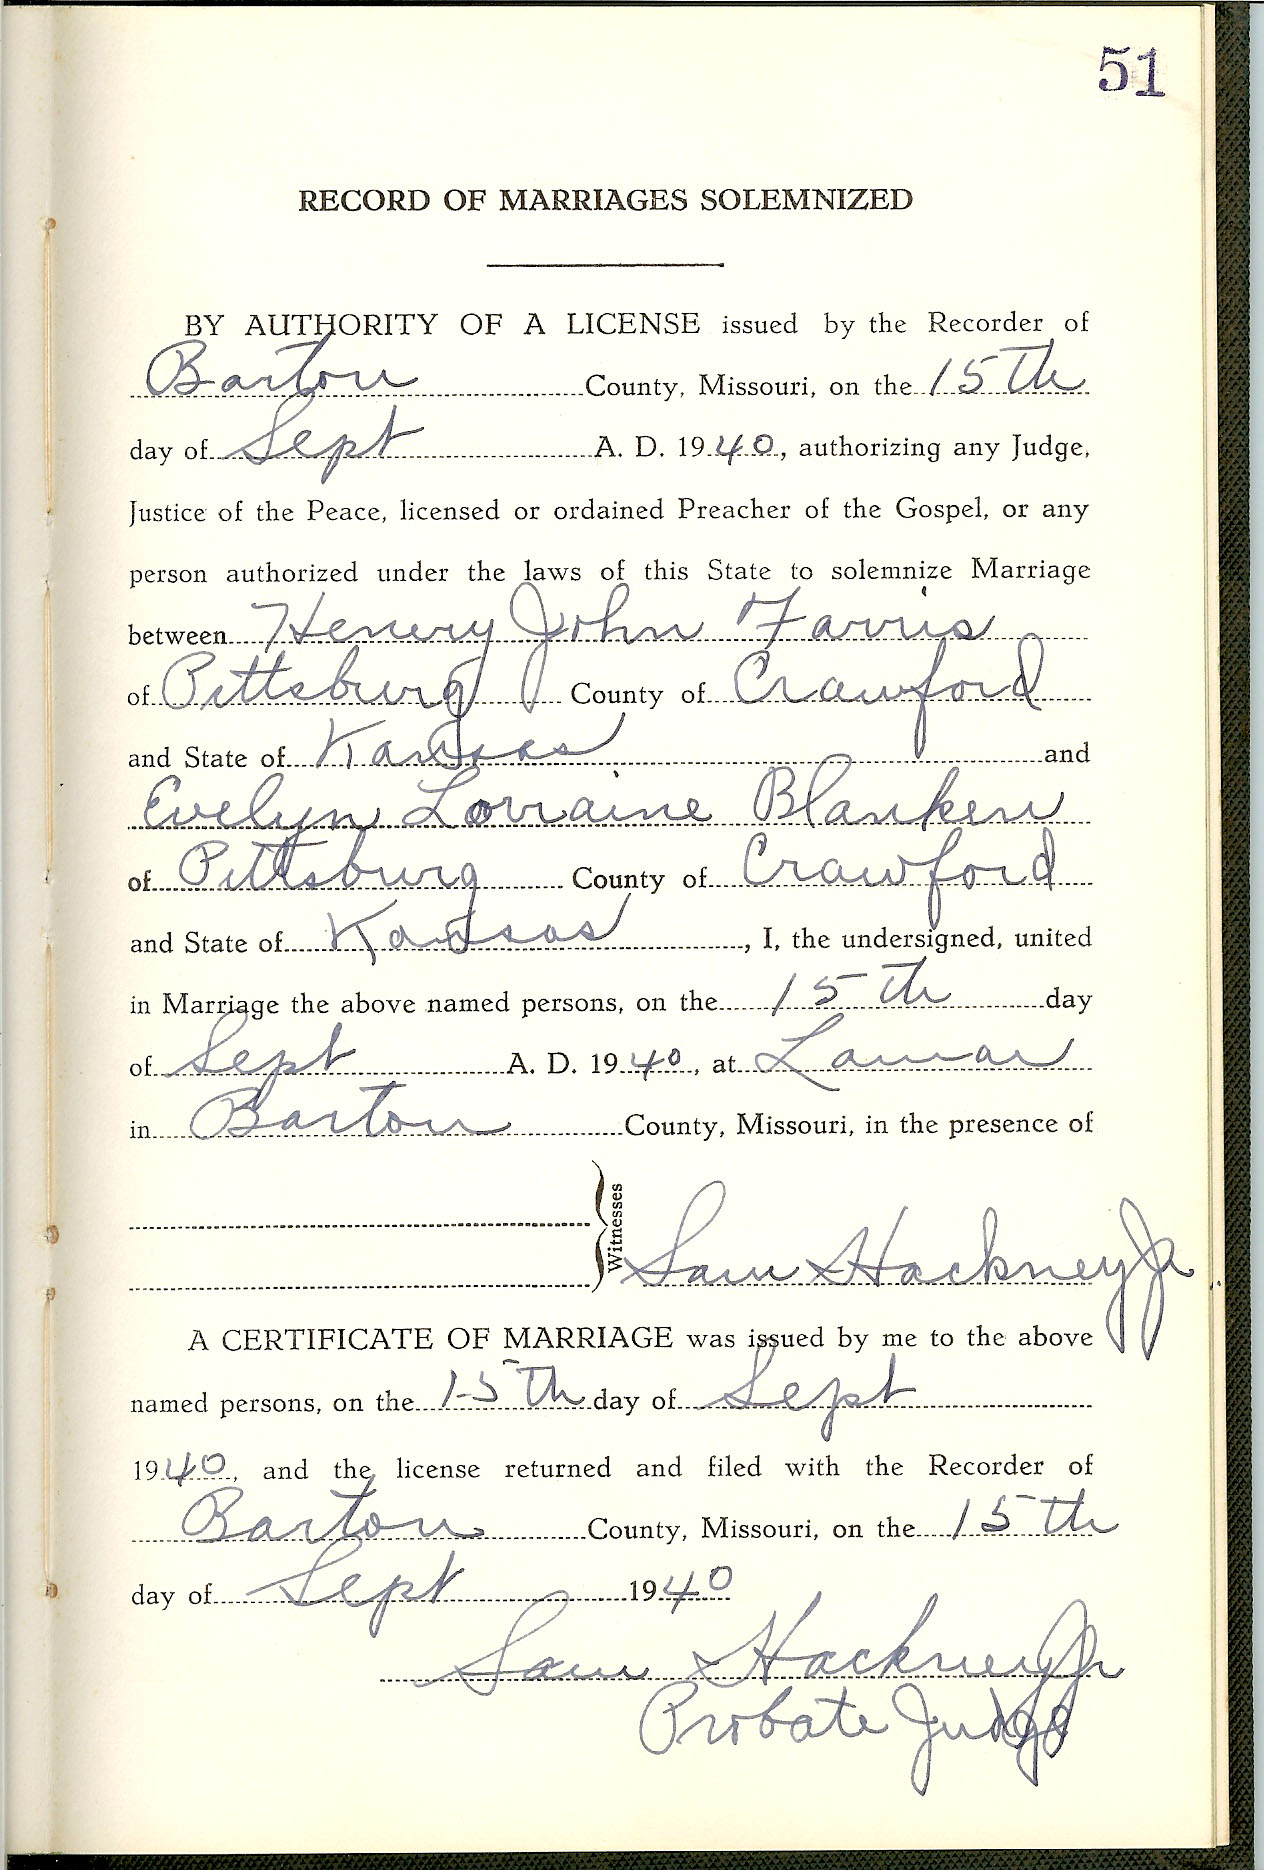 51
RECORD OF MARRIAGES SOLEMNIZED
BY AUTHORITY OF A LICENSE issued by the Recorder of
Barton County, Missouri, on the 15th
day of Sept A. D. 1940, authorizing any Judge,
Justice of the Peace, licensed or ordained Preacher of the Gospel, or any
person authorized under the laws of this State to solemnize Marriage
between Henry John Farris
of Pittsburg County of Crawford
and State of Kansas and
Evelyn Lorraine Blanken
of Pittsburg County of Crawford
and State of Kansas, I, the undersigned, united
in Marriage the above named persons, on the 15th day
of Sept A. D. 1940, at Lamar
in Barton County, Missouri, in the presence of
Witnesses
Sam Hackney Jr
A CERTIFICATE OF MARRIAGE was issued by me to the above
named persons, on the 15th day of Sept
1940, and the license returned and filed with the Recorder of
Barton County, Missouri, on the 15th
day of Sept 1940
Sam Hackney Jr
Probate Judge